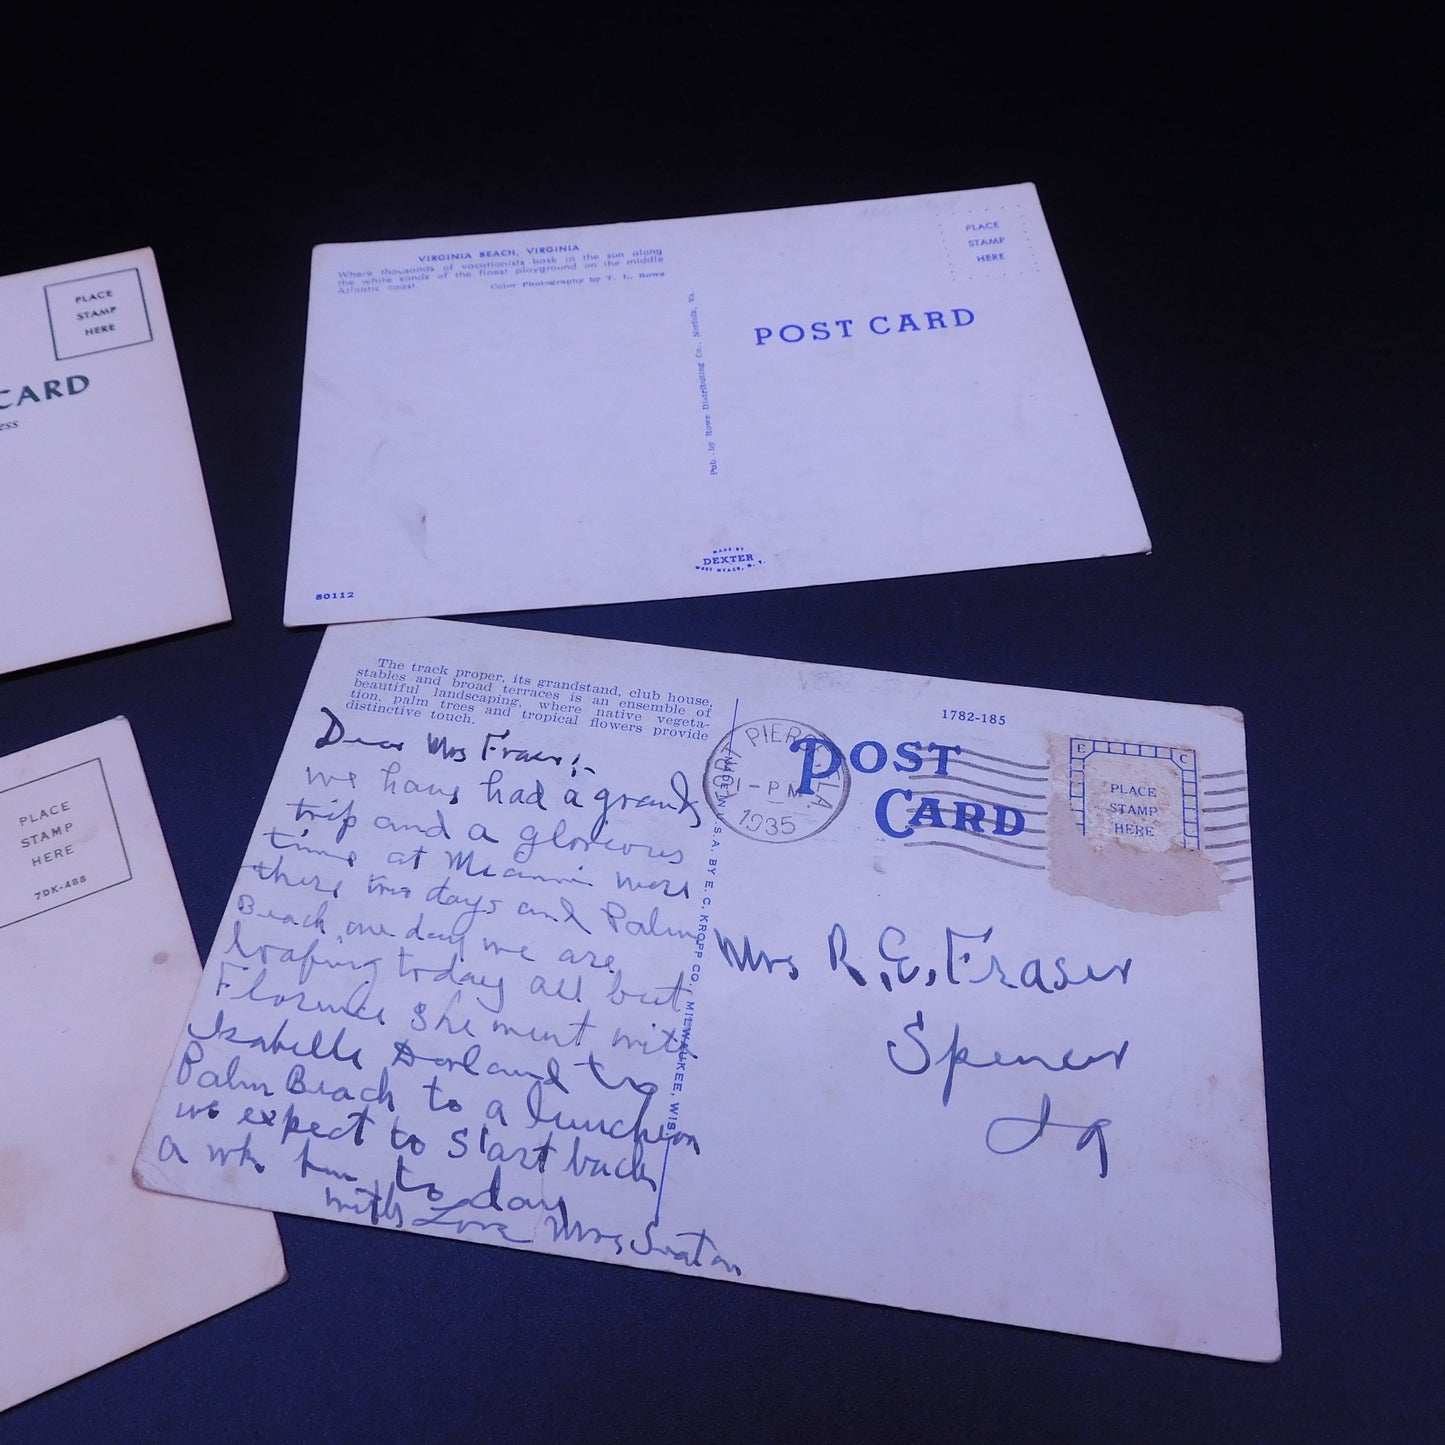 PLACE
STAMP
HERE
CARD
ess
VIRGINIA BEACH, VIRGINIA
Where thousands of vacationists bask in the sun along
the white sands of the finest playground on the middle
Atlantic coast.
Color Photography by T. L. Rowe
Pub. by Rowe Distributing Co., Norfolk, Va.
PLACE
STAMP
HERE
POST CARD
MADE BY
DEXTER
WEST NYACK, N. Y.
80112
PLACE
STAMP
HERE
7DK-488
The track proper, its grandstand, club house,
stables and broad terraces is an ensemble of
beautiful landscaping, where native vegeta-
tion, palm trees and tropical flowers provide
distinctive touch.
Dear Mrs Fraser:-
we have had a grand
trip and a glorious
time at Miami were
there two days and Palm
Beach one day we are
loafing today all but
Florence she went with
Isabelle Dorland to
Palm Beach to a luncheon
we expect to start back
a wk from today
with Love Mrs Seaton
MADE IN U.S.A. BY E. C. KROPP CO., MILWAUKEE, WIS.
1782-185
FORT PIERCE, FLA.
1-PM
1935
POST
CARD
E C
PLACE
STAMP
HERE
Mrs R.E. Fraser
Spencer
Ia